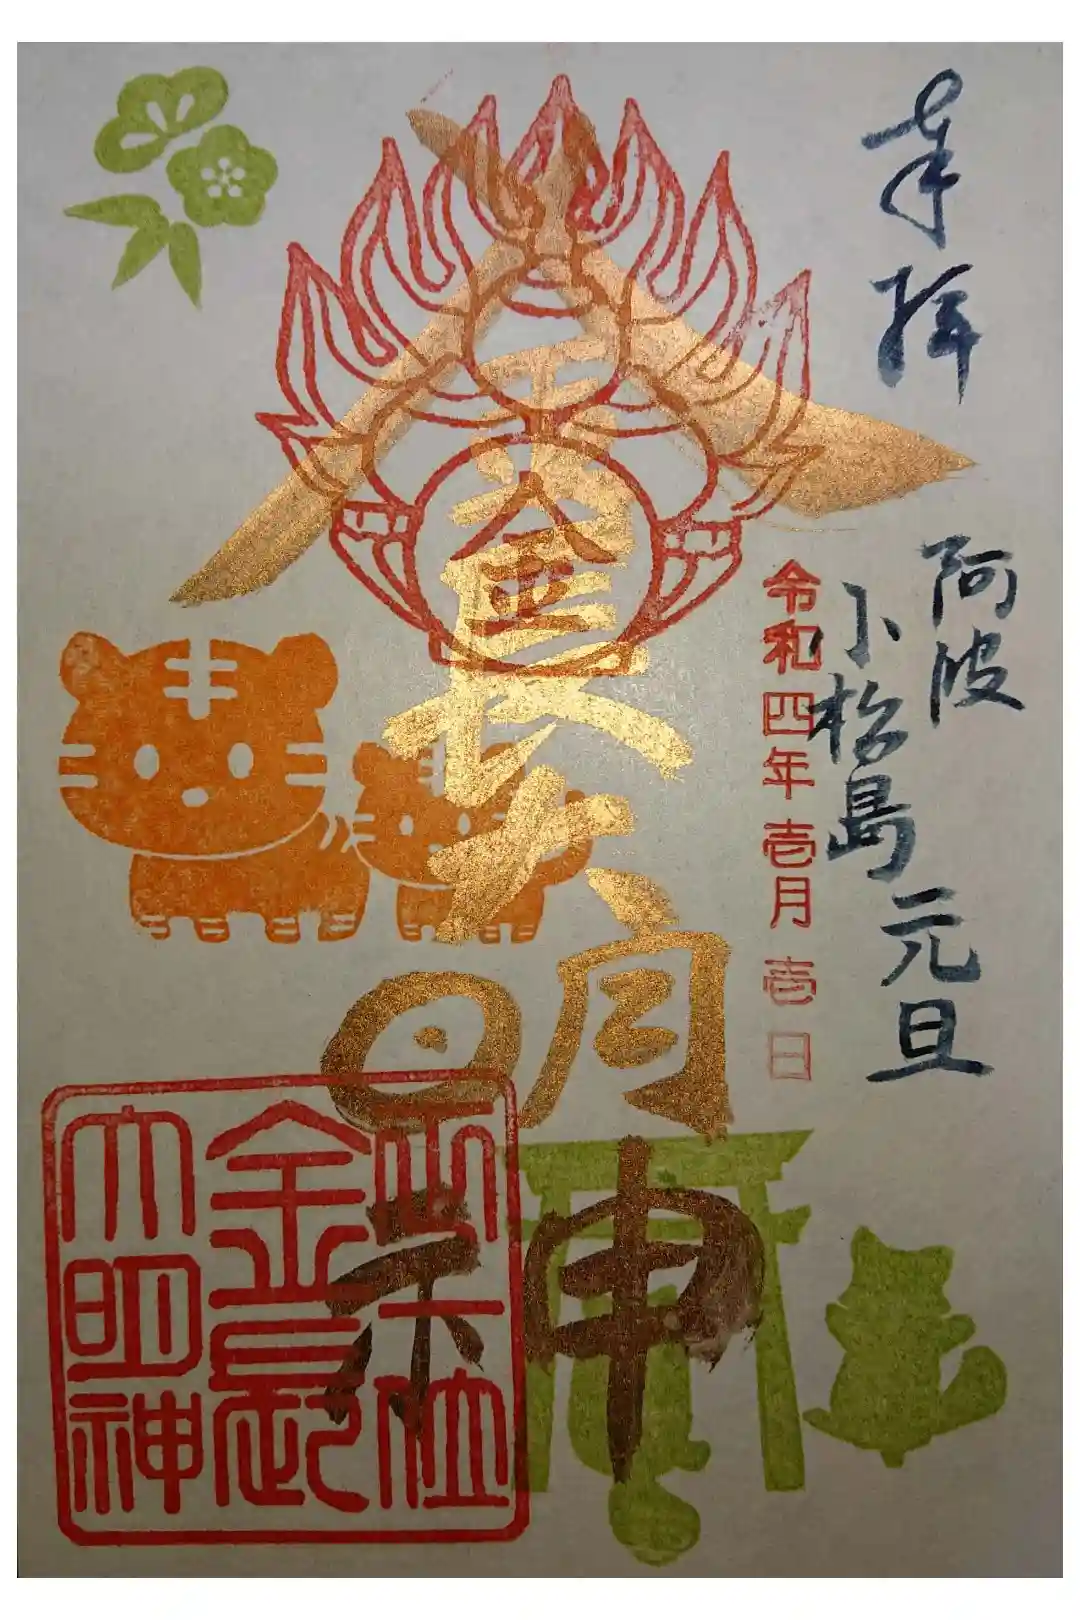 奉拝
阿波
小松島
元旦
令和四年壱月壱日
金長大明神
金
正一位
金長
大明神